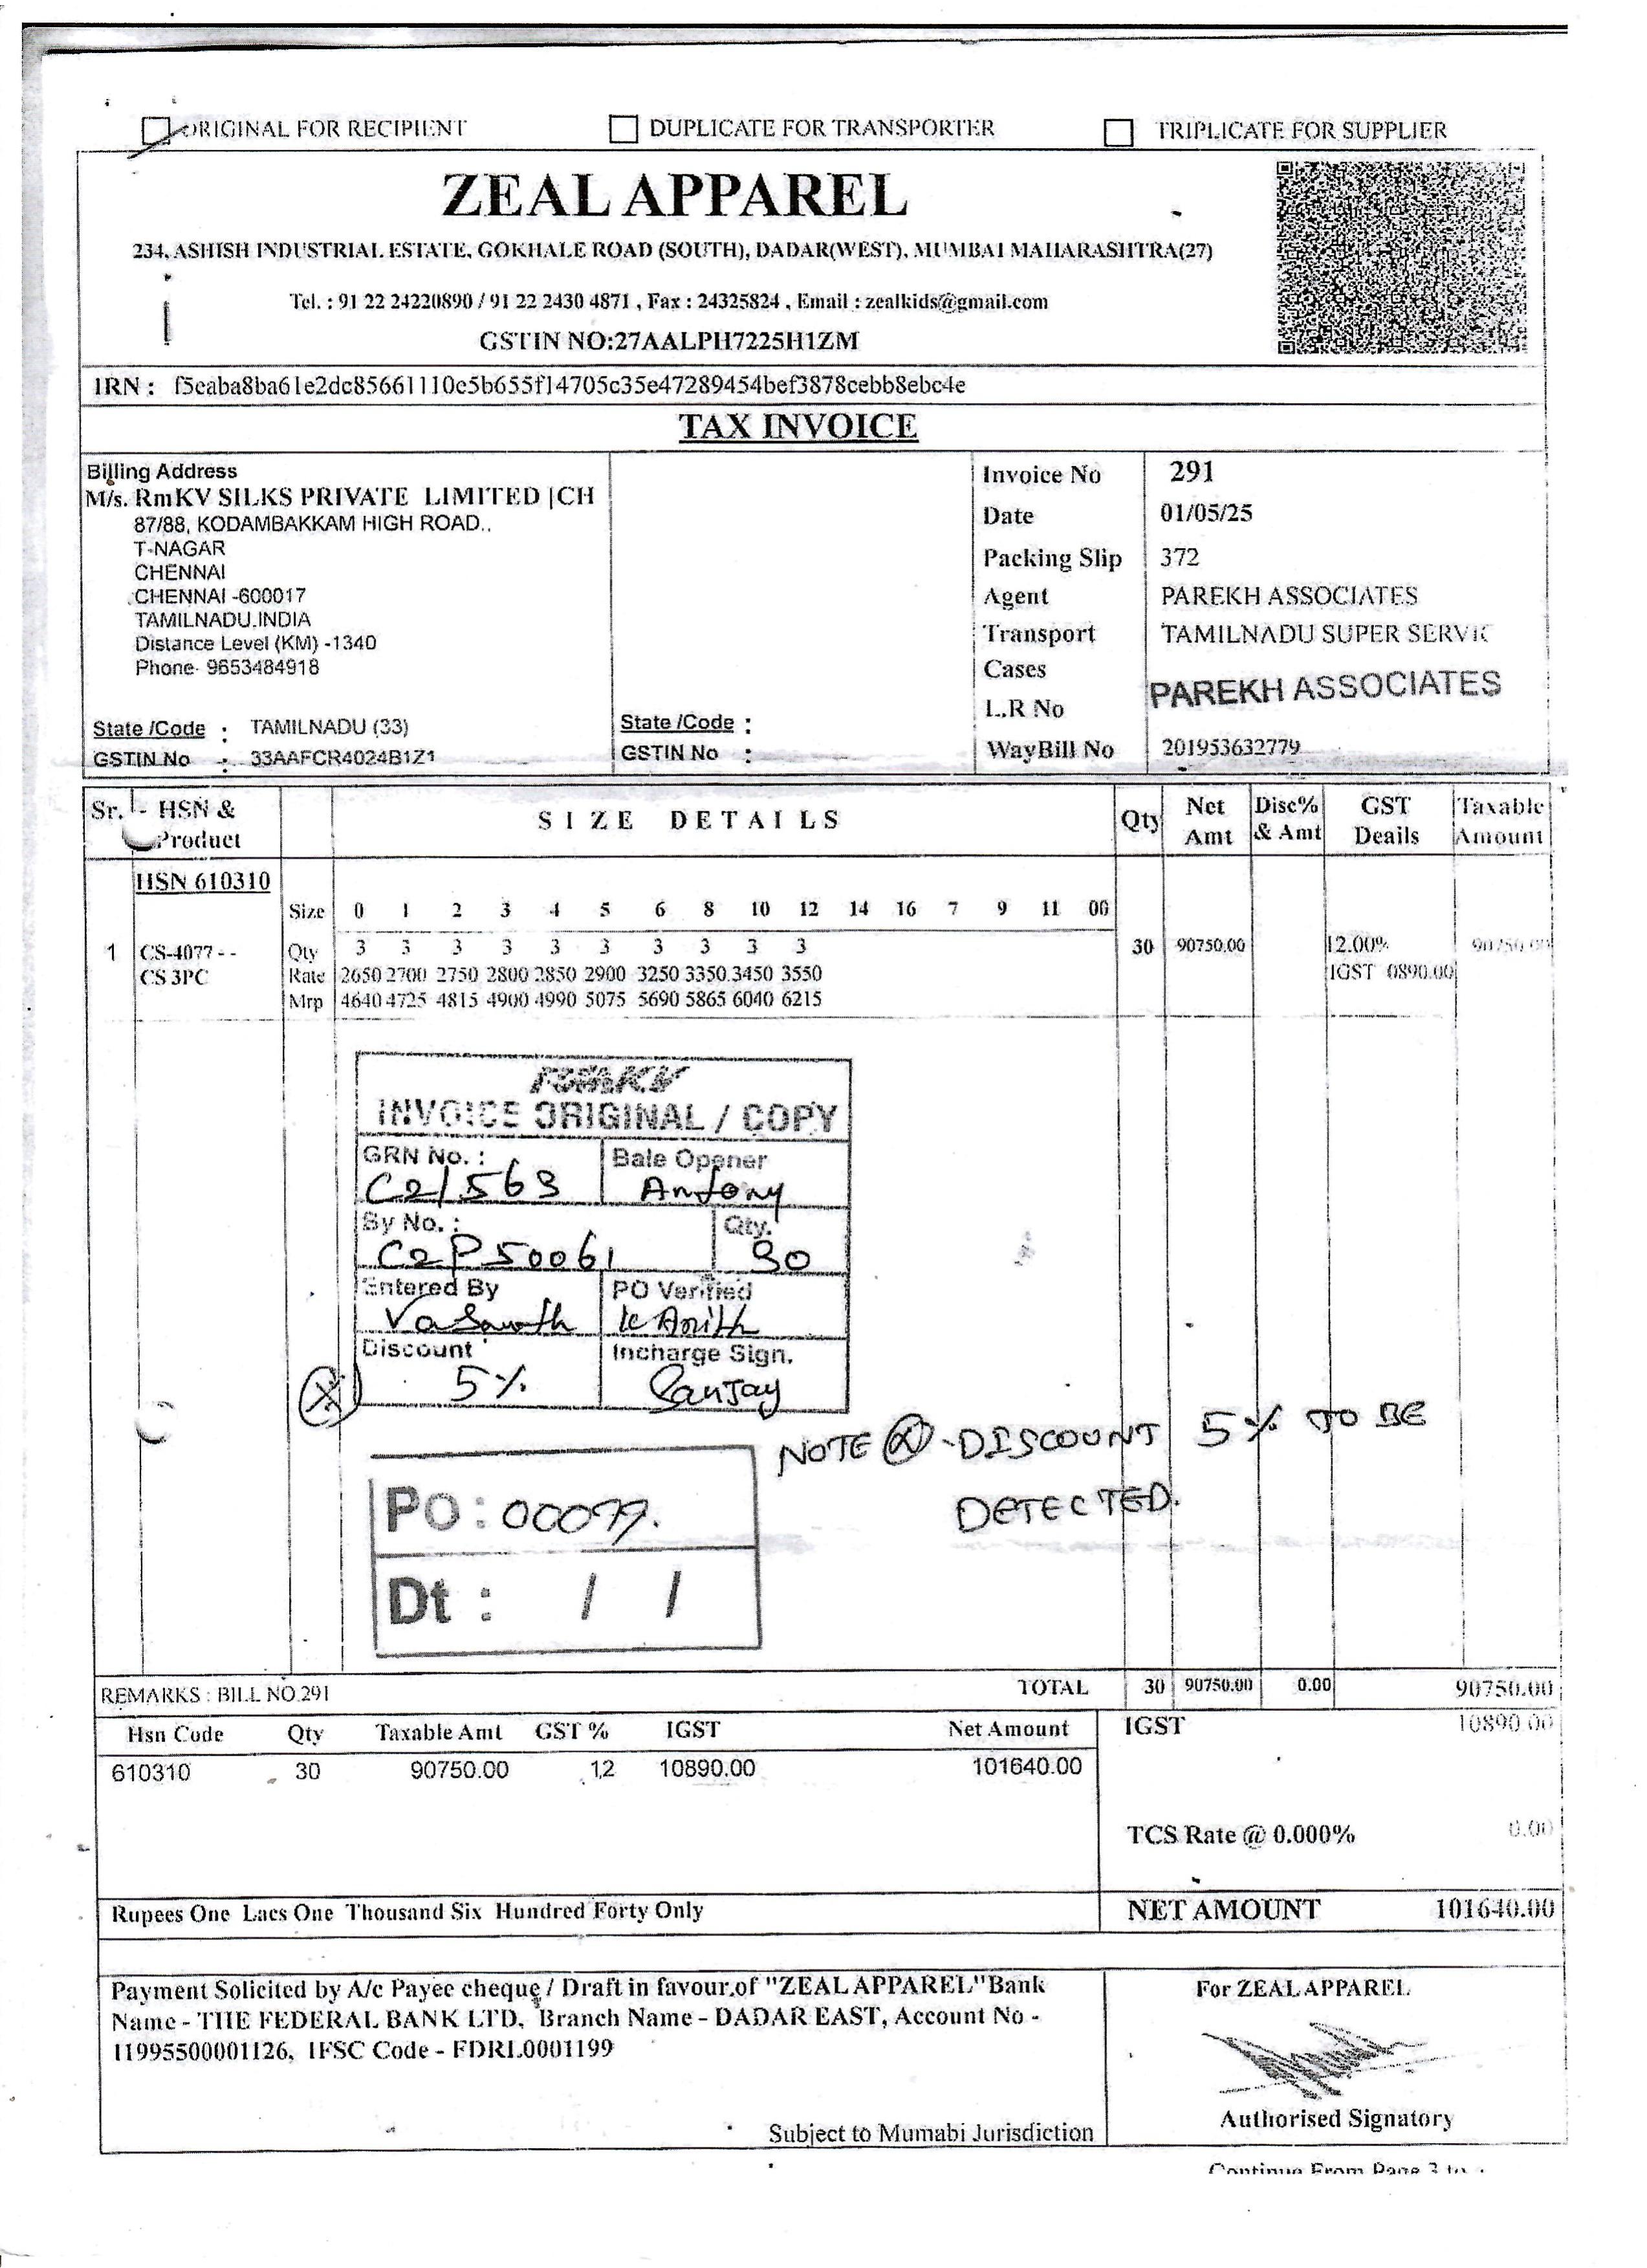 ORIGINAL FOR RECIPIENT DUPLICATE FOR TRANSPORTER TRIPLICATE FOR SUPPLIER
ZEAL APPAREL
234, ASHISH INDUSTRIAL ESTATE, GOKHALE ROAD (SOUTH), DADAR(WEST), MUMBAI MAHARASHTRA(27)
Tel. : 91 22 24220890 / 91 22 2430 4871 , Fax : 24325824 , Email : zealkids@gmail.com
GSTIN NO:27AALPH7225H1ZM
IRN : f5eaba8ba61e2dc85661110c5b655f14705c35e47289454bef3878cebb8ebc4e
TAX INVOICE
Billing Address
M/s. RmKV SILKS PRIVATE LIMITED |CH
87/88, KODAMBAKKAM HIGH ROAD..
T-NAGAR
CHENNAI
CHENNAI -600017
TAMILNADU.INDIA
Distance Level (KM) -1340
Phone- 9653484918
State /Code : TAMILNADU (33)
GSTIN No : 33AAFCR4024B1Z1
State /Code :
GSTIN No :
Invoice No 291
Date 01/05/25
Packing Slip 372
Agent PAREKH ASSOCIATES
Transport TAMILNADU SUPER SERVIC
Cases
PAREKH ASSOCIATES
L.R No
WayBill No 201953632779
Sr. HSN & Product SIZE DETAILS Qty Net Amt Disc% & Amt GST Deails Taxable Amount
HSN 610310
Size 0 1 2 3 4 5 6 8 10 12 14 16 7 9 11 00
1 CS-4077 - - Qty 3 3 3 3 3 3 3 3 3 3 30 90750.00 12.00% 90750.00
CS 3PC Rate 2650 2700 2750 2800 2850 2900 3250 3350 3450 3550 IGST 0890.00
Mrp 4640 4725 4815 4900 4990 5075 5690 5865 6040 6215
RmKV
INVOICE ORIGINAL / COPY
GRN No. : Bale Opener
C2/563 Antony
Sy No. : Qty.
C2P50061 30
Entered By PO Verified
Vasanth
Discount Incharge Sign.
5% Sanjay
NOTE - DISCOUNT 5% TO BE
DETECTED.
PO : 00079.
Dt : / /
REMARKS : BILL NO.291 TOTAL 30 90750.00 0.00 90750.00
Hsn Code Qty Taxable Amt GST % IGST Net Amount IGST 10890.00
610310 30 90750.00 12 10890.00 101640.00
TCS Rate @ 0.000% 0.00
Rupees One Lacs One Thousand Six Hundred Forty Only NET AMOUNT 101640.00
Payment Solicited by A/c Payee cheque / Draft in favour.of "ZEAL APPAREL"Bank
Name - THE FEDERAL BANK LTD, Branch Name - DADAR EAST, Account No -
11995500001126, IFSC Code - FDRL0001199
For ZEAL APPAREL
Authorised Signatory
Subject to Mumabi Jurisdiction
Continue From Page 3 to